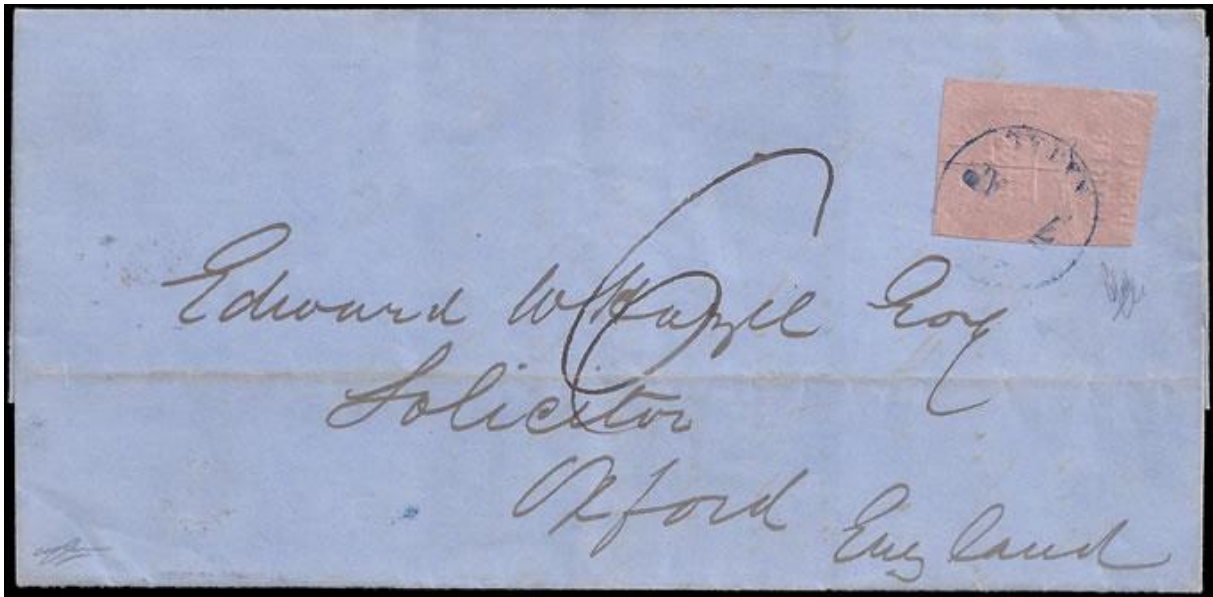 6
Edward W Hazel Esq
Solicitor
Oxford
England